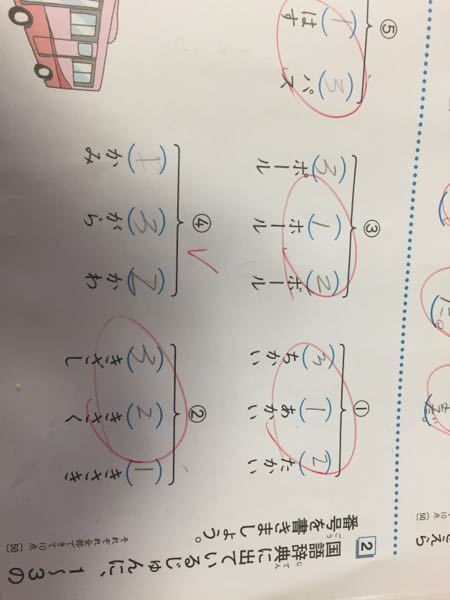 2 国語辞典に出ているじゅんに、1〜3の
じてん
番号を書きましょう。
ごう
それぞれ全部できて10点【50】
①
(2) たかい
(1) あかい
(3) ちかい
②
(1) きさき
(2) きさく
(3) きざし
③
(2) ボール
(1) ホール
(3) ポール
④
(2) かわ
(3) がら
(1) かみ
⑤
(1) はす
(3) パス